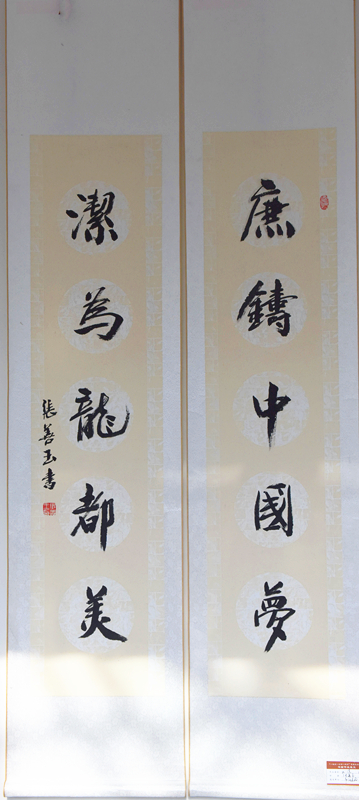 廉鑄中國夢
潔為龍都美
張善玉書